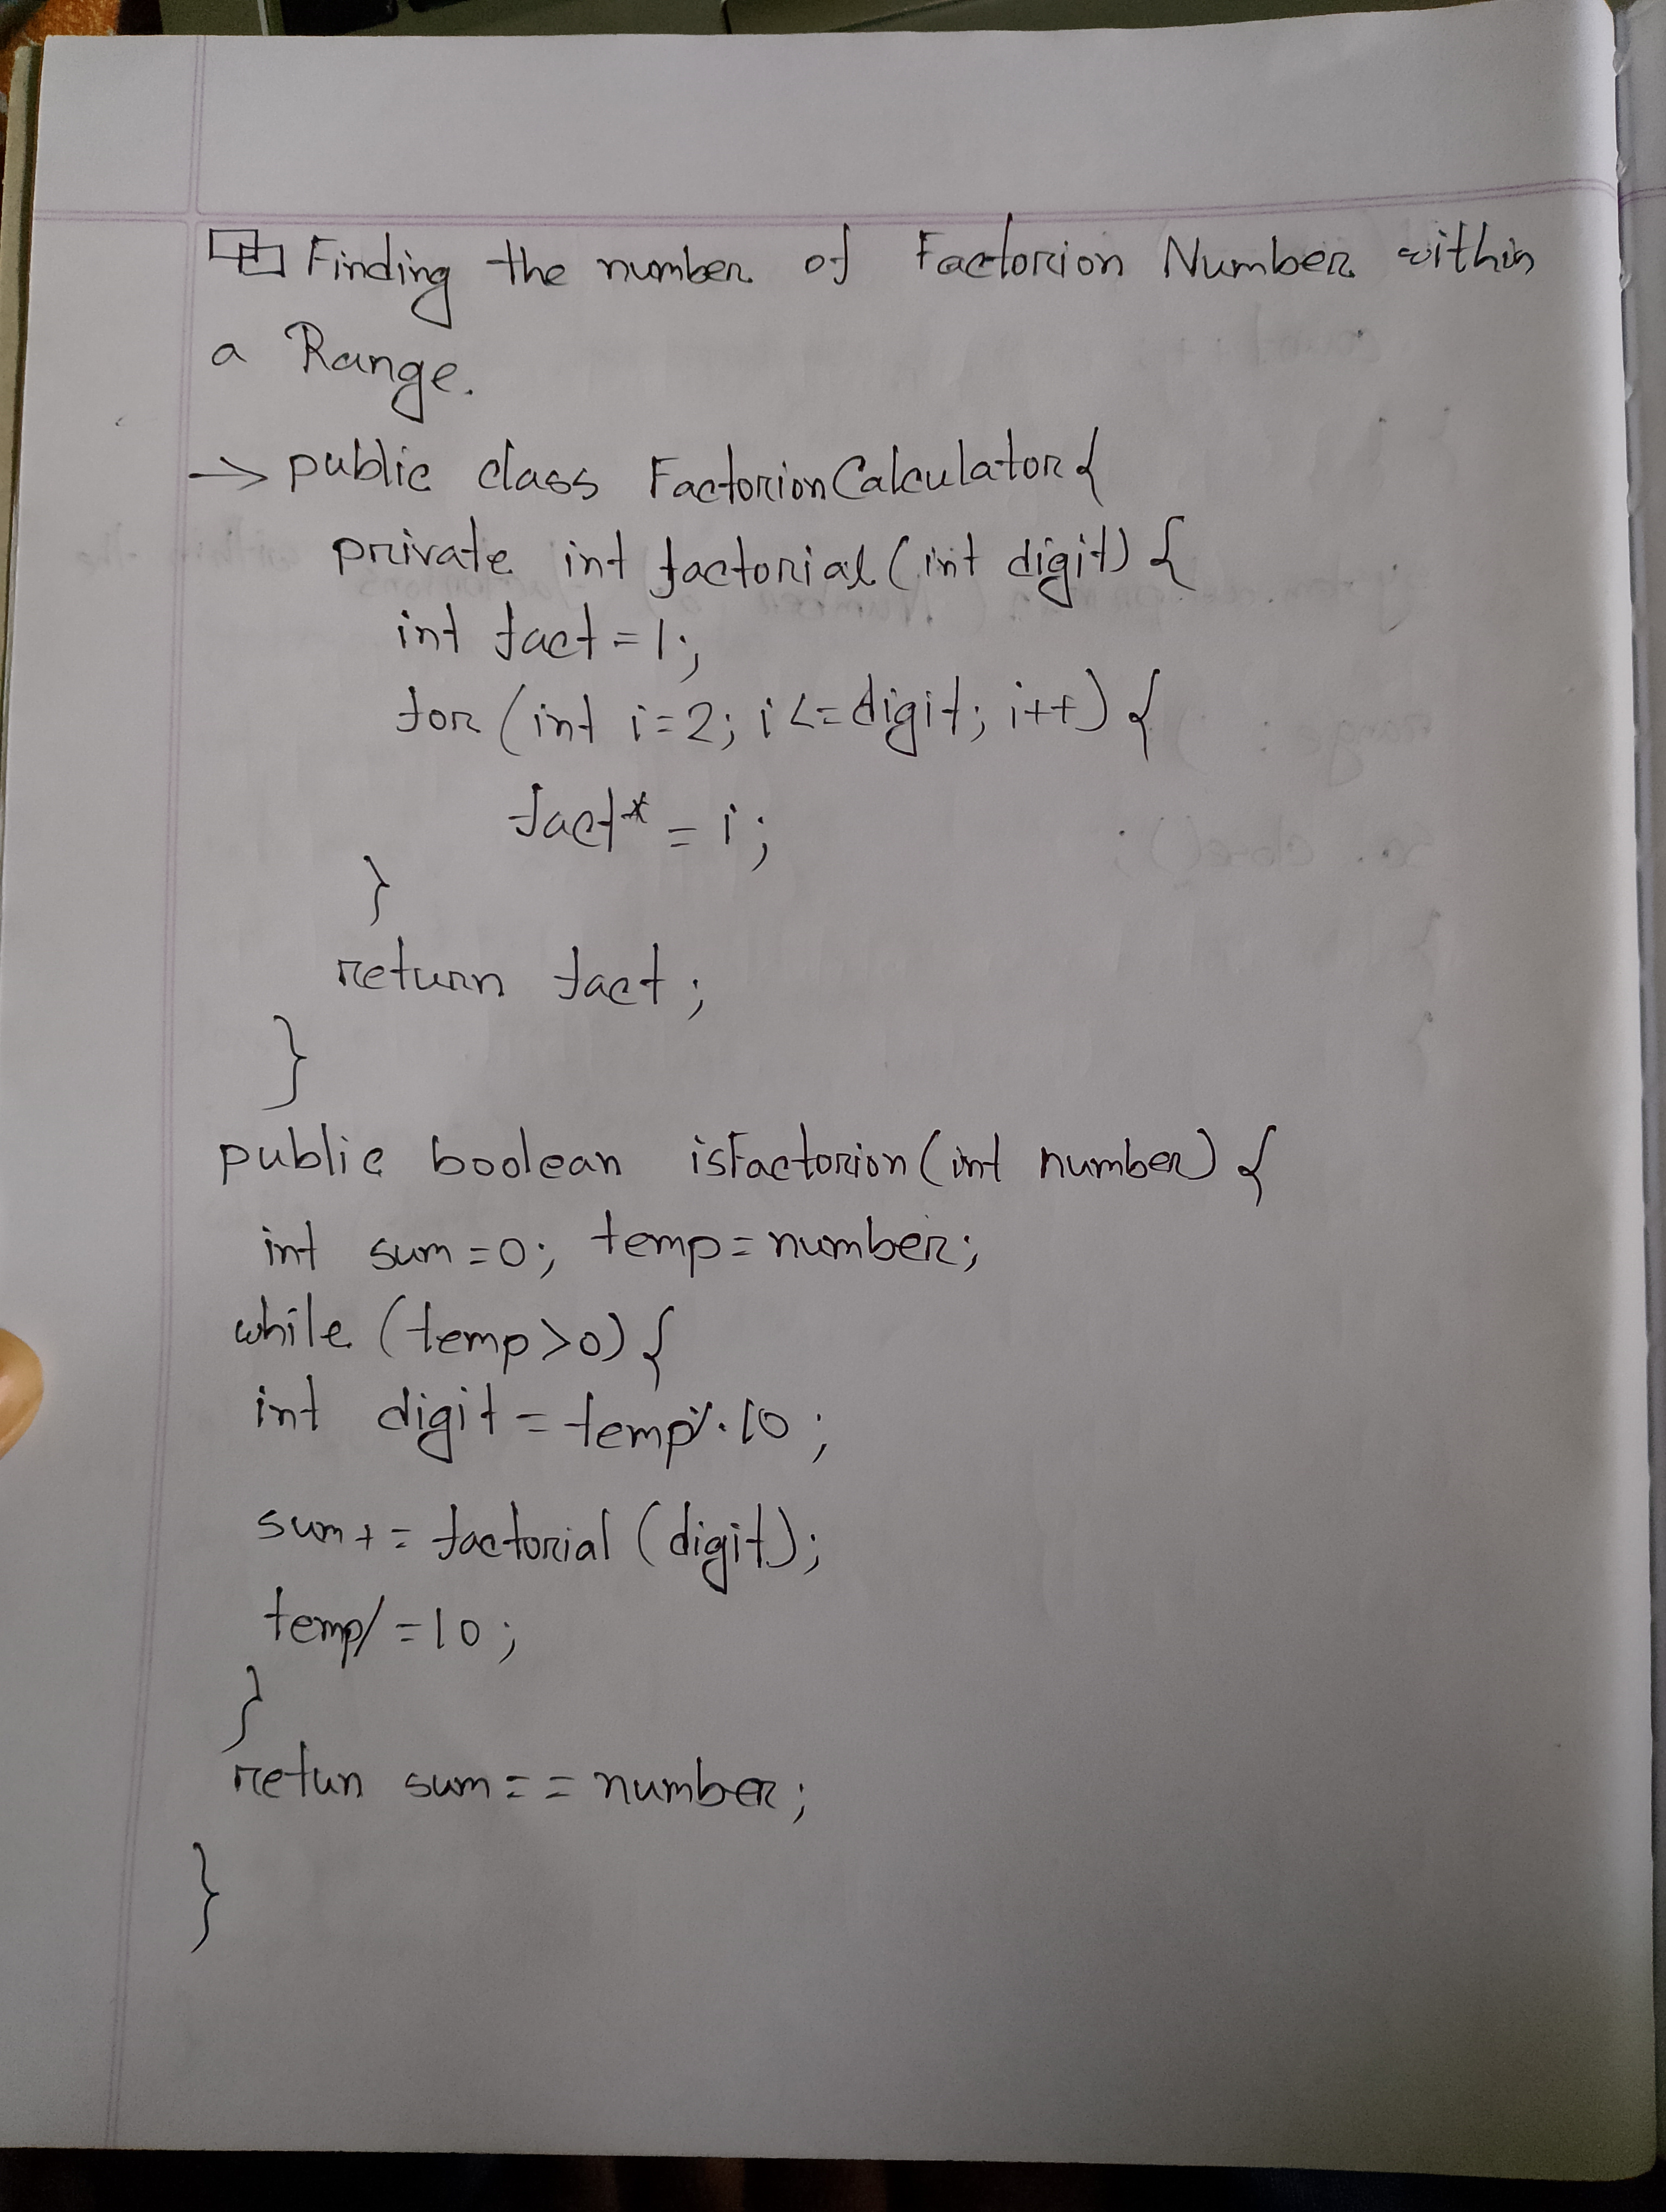 Finding the number of Factorion Number within
a Range.
→ public class FactorionCalculator{
private int factorial (int digit) {
int fact = 1;
for (int i=2; i<=digit; i++) {
fact* = i;
}
return fact;
}
public boolean isFactorion (int number) {
int sum = 0; temp = number;
while (temp>0) {
int digit = temp%10;
sum+= factorial (digit);
temp/=10;
}
retun sum == number;
}